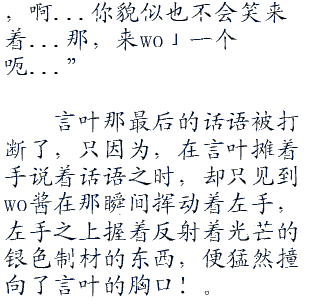 ，啊...你貌似也不会笑来
着...那，来wo」一个
呃...”
言叶那最后的话语被打
断了，只因为，在言叶摊着
手说着话语之时，却只见到
wo酱在那瞬间挥动着左手，
左手之上握着反射着光芒的
银色制材的东西，便猛然撞
向了言叶的胸口！。